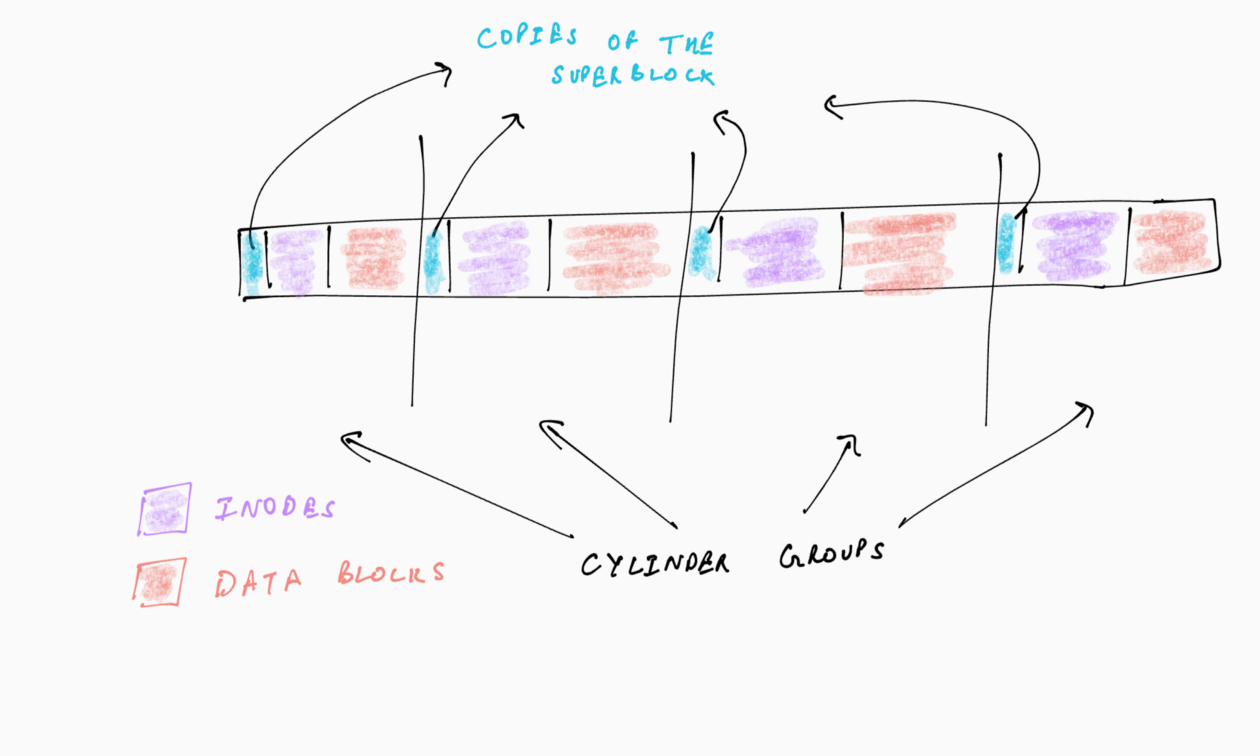 COPIES OF THE
SUPERBLOCK
INODES
DATA BLOCKS
CYLINDER GROUPS